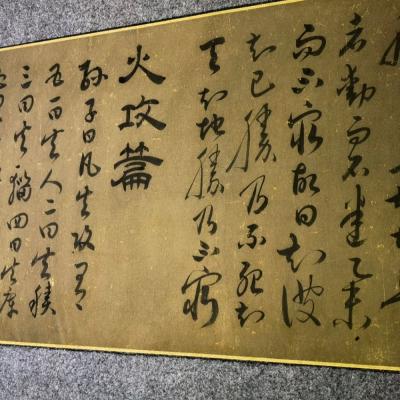 者動而不迷
而不窮故曰知彼
知己勝乃不殆知
天知地勝乃不窮
火攻篇
孫子曰凡火攻有
五一曰火人二曰火積
三曰火輜四曰火庫